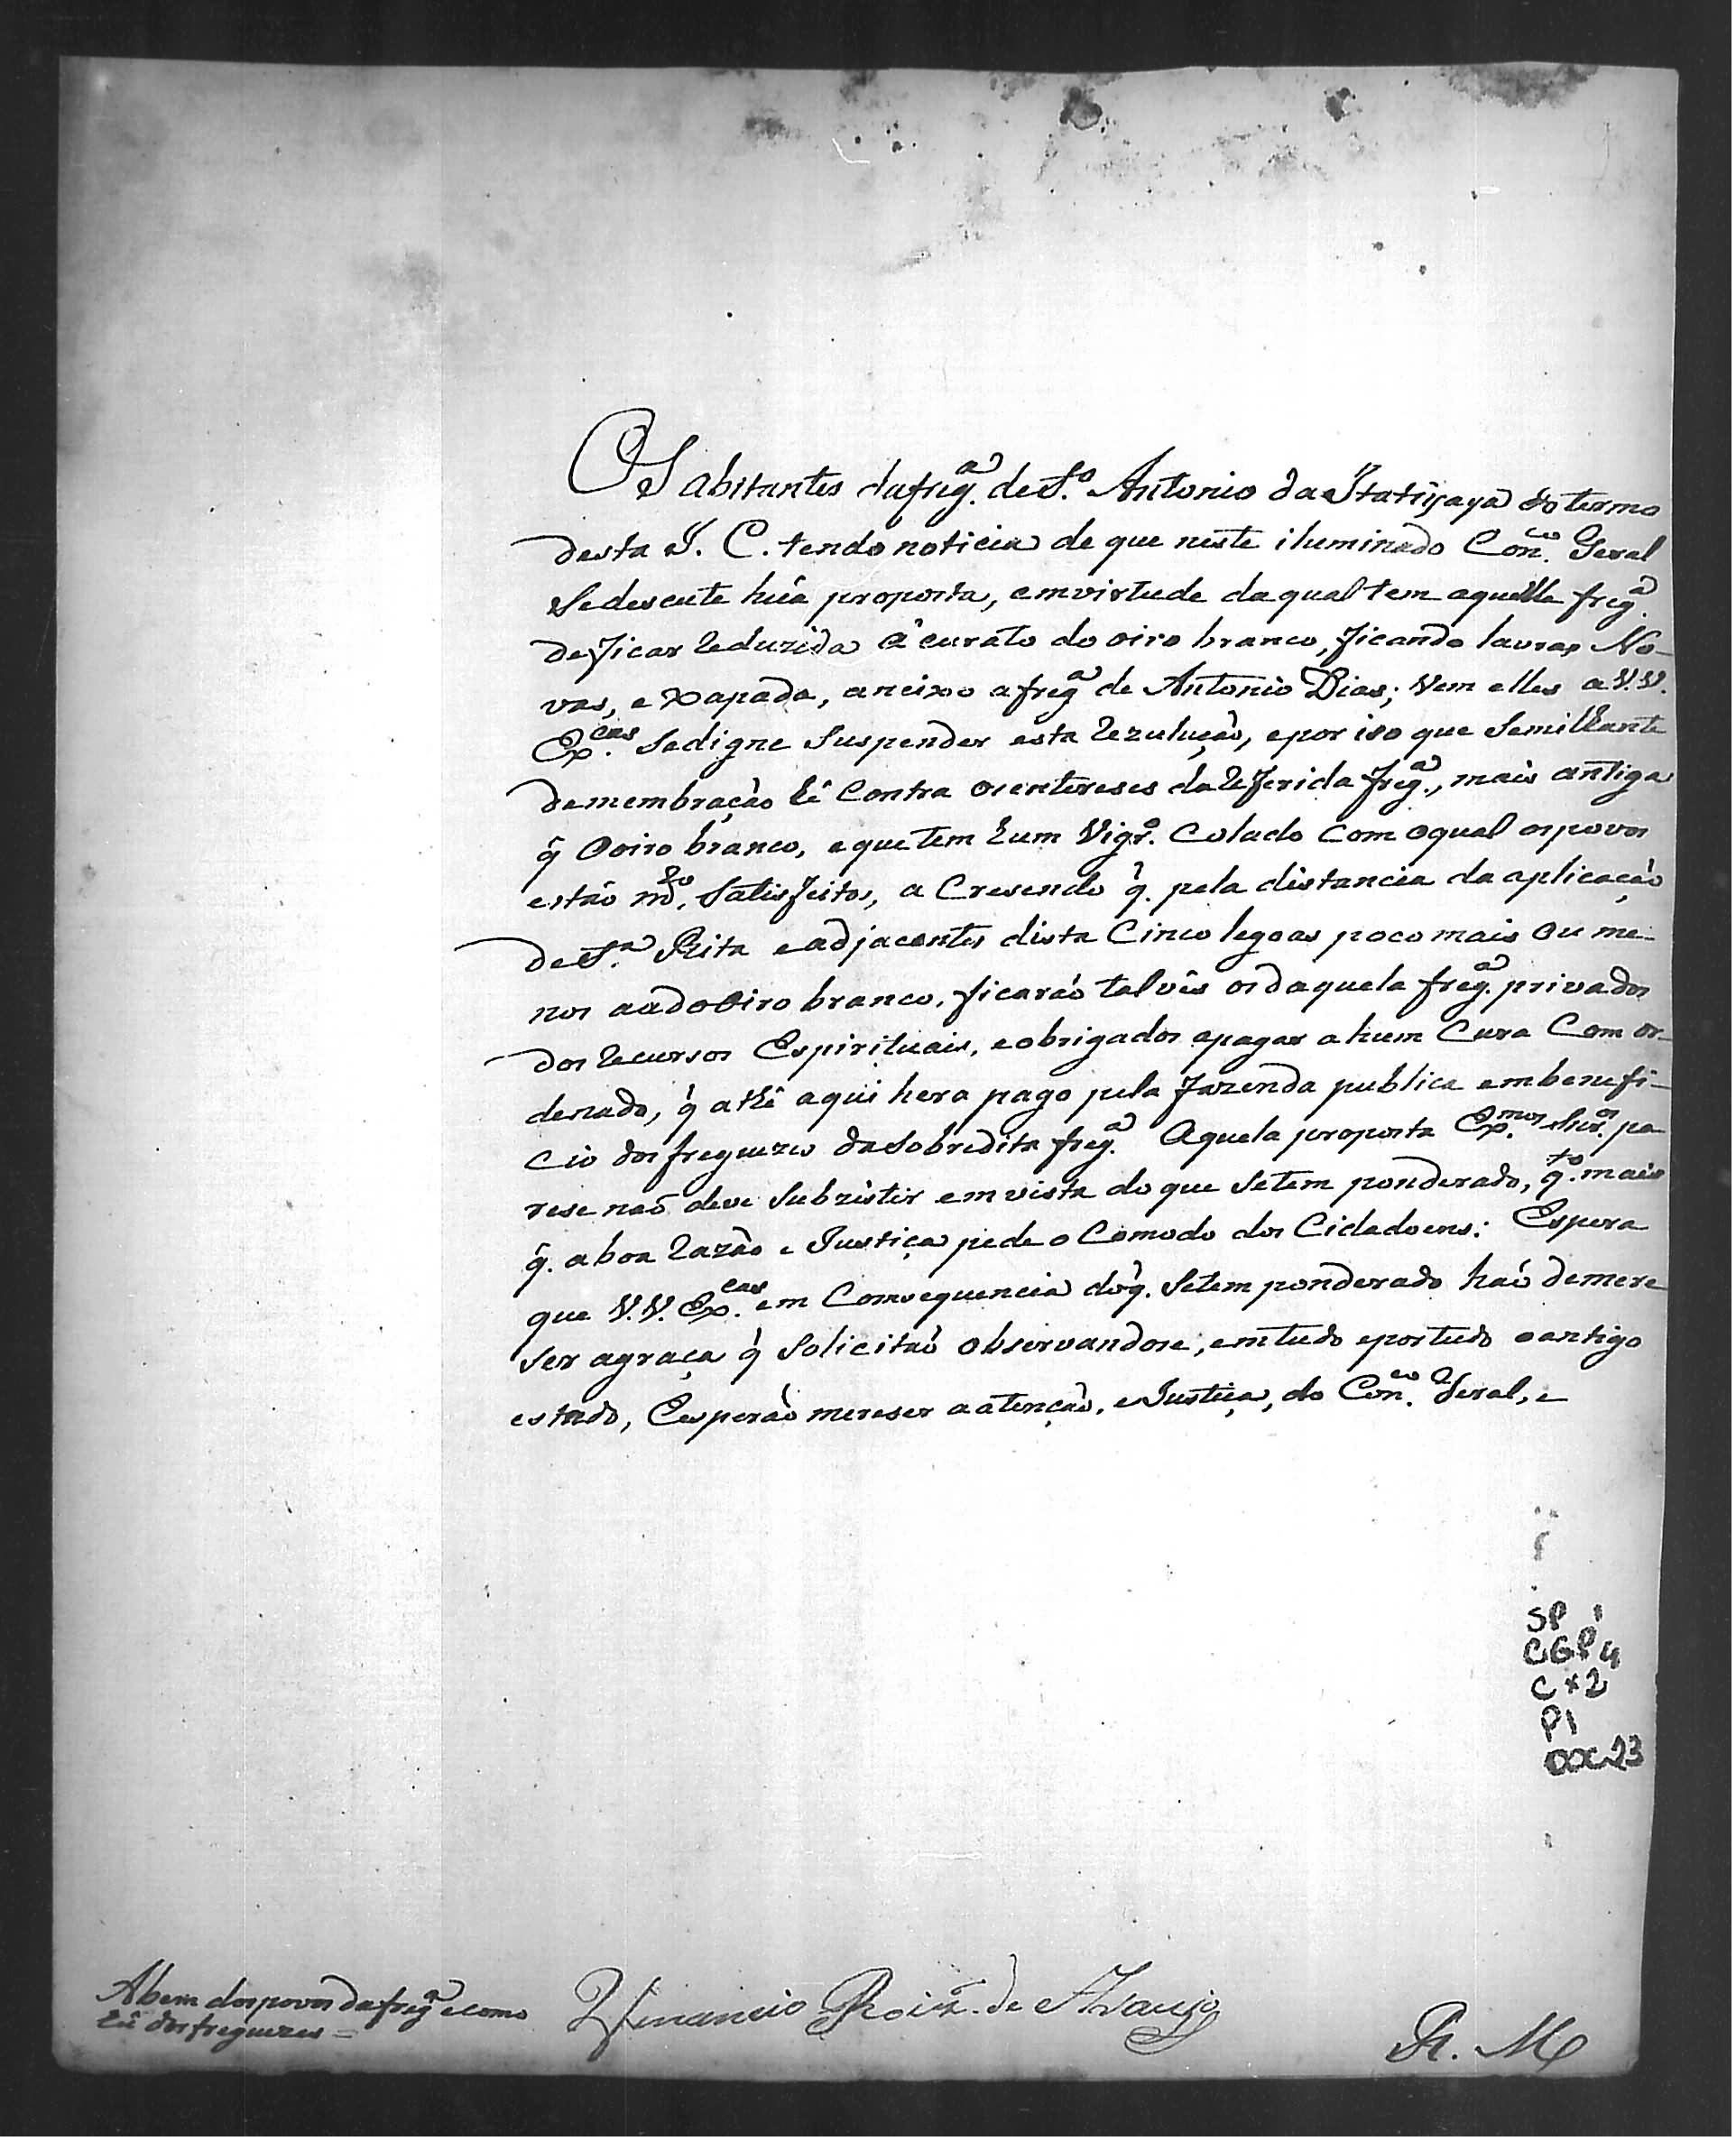 Os abitantes da freg.ª de S.to Antonio da Itatiyaya do termo
desta I. C. tendo noticia de que neste iluminado Con.co Geral
Se descute huã proposta, em virtude da qual tem aquella freg.ª
de ficar Reduzida á curato do oiro branco, ficando lavras No-
vas, e Xapada, aneixo a freg.ª de Antonio Dias; Vem elles a V.V.
Ex.cas Se digne Suspender esta Rezulução, e por iso que Semilhante
demembração hé Contra os entereses da Referida freg.ª, mais antiga
q̃ O oiro branco, e que tem hum Vigr.º Colado Com o qual os povos
estão m.to Satisfeitos, a Cresendo q̃. pela distancia da aplicação
de S.ta Rita e adjacentes dista Cinco legoas poco mais Ou me-
nos a a do Oiro branco, ficaráo talvês os daquela freg.ª privados
dos Recursos Espirituais, e obrigados a pagar a hum Cura Com or-
denado, q̃ athê aqui hera pago pela fazenda publica em benefi-
cio dos freguezes da Sobredita freg.ª Aquela proposta Ex.mos Snr.os pa
rese naõ deve Subzistir em vista do que Se tem ponderado, q.to mais
q̃. a boa Razão e Justiça pede o Comodo dos Cidadoens: Espera
que V.V. Ex.cas em Comsequencia do q̃. Se tem ponderado haó de mere
ser a graça q̃ Solicitaó observandose, em tudo e por tudo o antigo
estado, E esperáo mereser a atenção, e Justiça, do Con.co Geral, e
SP 1
CGP 4
Cx 2
P1
DOC 23
A bem dos povos da freg.ª e como
hũ dos freguezes =
Venancio Roiz. de Araujo
R. M